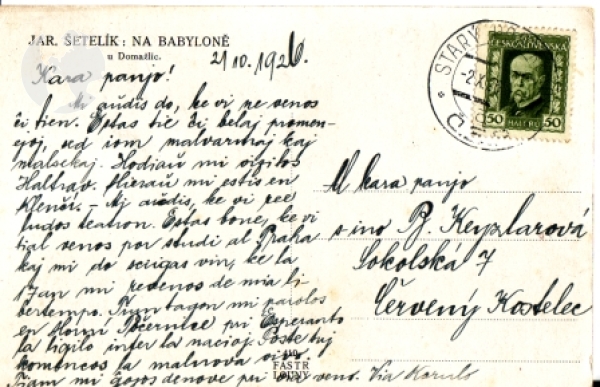 JAR. ŠETELÍK: NA BABYLONĚ
u Domažlic.
2/10.1926.
Kara panjo!
Mi aŭdis do, ke vi ne venos
ĉi tien. Estas tie ĉi belaj promen-
ejoj, sed iom malvarmaj kaj
malsekaj. Hodiaŭ mi vizitos
Haltrav. Hieraŭ mi estis en
Klenčí. - Mi aŭdis, ke vi
ludos teatron. Estas bone, ke vi
tial venos por studi al Praha
kaj mi do sciigas vin, ke la
mi revenos de mia li
bertempo. Tiun tagon mi parolos
en Horní Počernice pri Esperanto
la ligilo inter la nacioj. Poste tuj
komencos la malnova
Tiam mi ĝojos denove pri via veno. Via Kornel
STARÝ
ČESKOSLOVENSKO
50 HALÉŘŮ 50
Al kara panjo
s-ino Bj. Keyzlarová
Sokolská 7
Červený Kostelec
FASTR
LOUNY